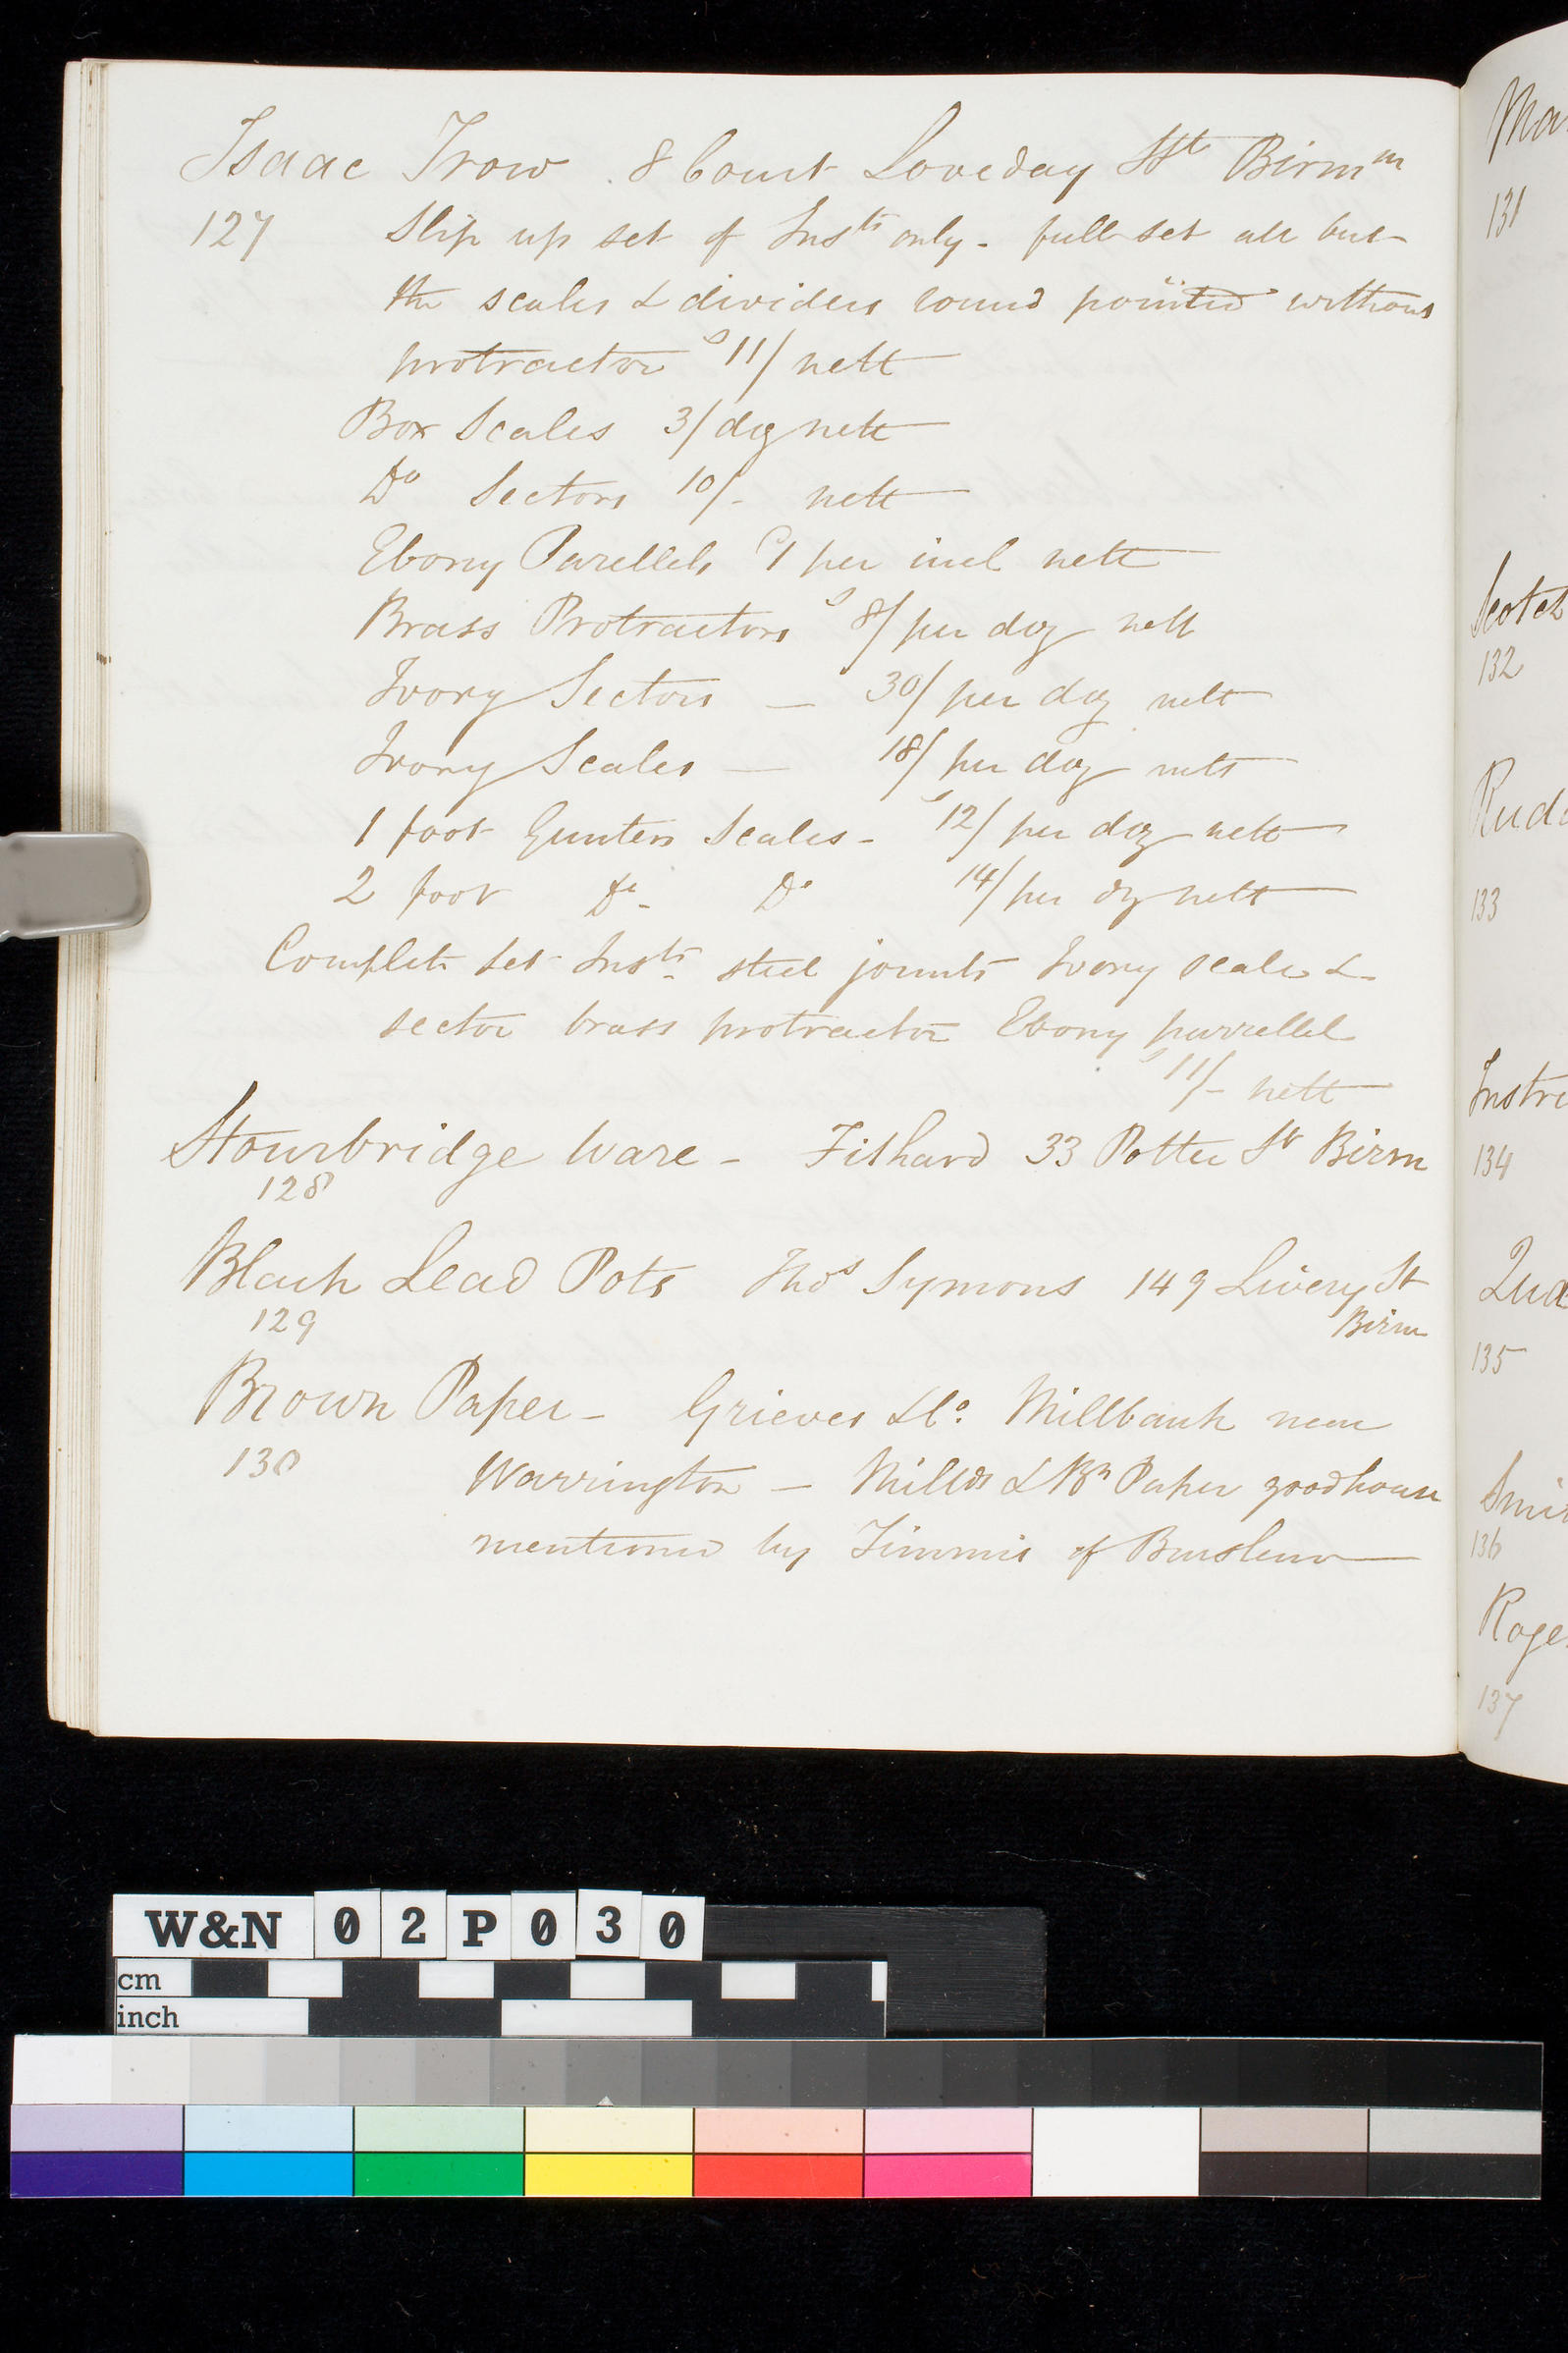 Isaac Trow . 8 Court Loveday St Birmm
127 Slip up set of Insts only - full set all but
the scales & dividers round pointed without
protractor s 11/ nett
Box Scales 3/ doz nett
Do Sectors 10/- nett
Ebony Parellels 1 per inch nett
Brass Protractors s 8/ per doz nett
Ivory Sectors — 30/ per doz nett
Ivory Scales — 18/ per doz nett
1 foot Gunters Scales - s 12/ per doz nett
2 foot Do - Do 14/ per dz nett
Complete set Insts steel joints Ivory scale &
sector brass protractor Ebony parrellel
s 11/- nett
Stourbridge Ware - 33 Potter St Birm
128
Black Lead Pots Thos Symons 149 Livery St
129 Birm
Brown Paper - Grieves & Co. Millbank near
130 Warrington — Millds & Bn Paper good house
mentioned by Timmis of Burslem
Ma
131
Scotch
132
Rud
133
Instr
134
135
Smi
136
Roge
137
W&N 02P030
cm
inch